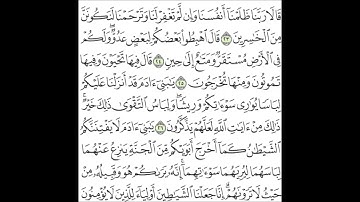 قَالَا رَبَّنَا ظَلَمْنَا أَنفُسَنَا وَإِن لَّمْ تَغْفِرْ لَنَا وَتَرْحَمْنَا لَنَكُونَنَّ
مِنَ الْخَاسِرِينَ ٢٣ قَالَ اهْبِطُوا بَعْضُكُمْ لِبَعْضٍ عَدُوٌّ وَلَكُمْ
فِي الْأَرْضِ مُسْتَقَرٌّ وَمَتَاعٌ إِلَىٰ حِينٍ ٢٤ قَالَ فِيهَا تَحْيَوْنَ وَفِيهَا
تَمُوتُونَ وَمِنْهَا تُخْرَجُونَ ٢٥ يَٰبَنِي ءَادَمَ قَدْ أَنزَلْنَا عَلَيْكُمْ
لِبَاسًا يُوَٰرِي سَوْءَٰتِكُمْ وَرِيشًا وَلِبَاسُ التَّقْوَىٰ ذَٰلِكَ خَيْرٌ
ذَٰلِكَ مِنْ ءَايَٰتِ اللَّهِ لَعَلَّهُمْ يَذَّكَّرُونَ ٢٦ يَٰبَنِي ءَادَمَ لَا يَفْتِنَنَّكُمُ
الشَّيْطَٰنُ كَمَا أَخْرَجَ أَبَوَيْكُم مِّنَ الْجَنَّةِ يَنزِعُ عَنْهُمَا
لِبَاسَهُمَا لِيُرِيَهُمَا سَوْءَٰتِهِمَا إِنَّهُ يَرَىٰكُمْ هُوَ وَقَبِيلُهُ مِنْ
حَيْثُ لَا تَرَوْنَهُمْ إِنَّا جَعَلْنَا الشَّيَٰطِينَ أَوْلِيَاءَ لِلَّذِينَ لَا يُؤْمِنُونَ